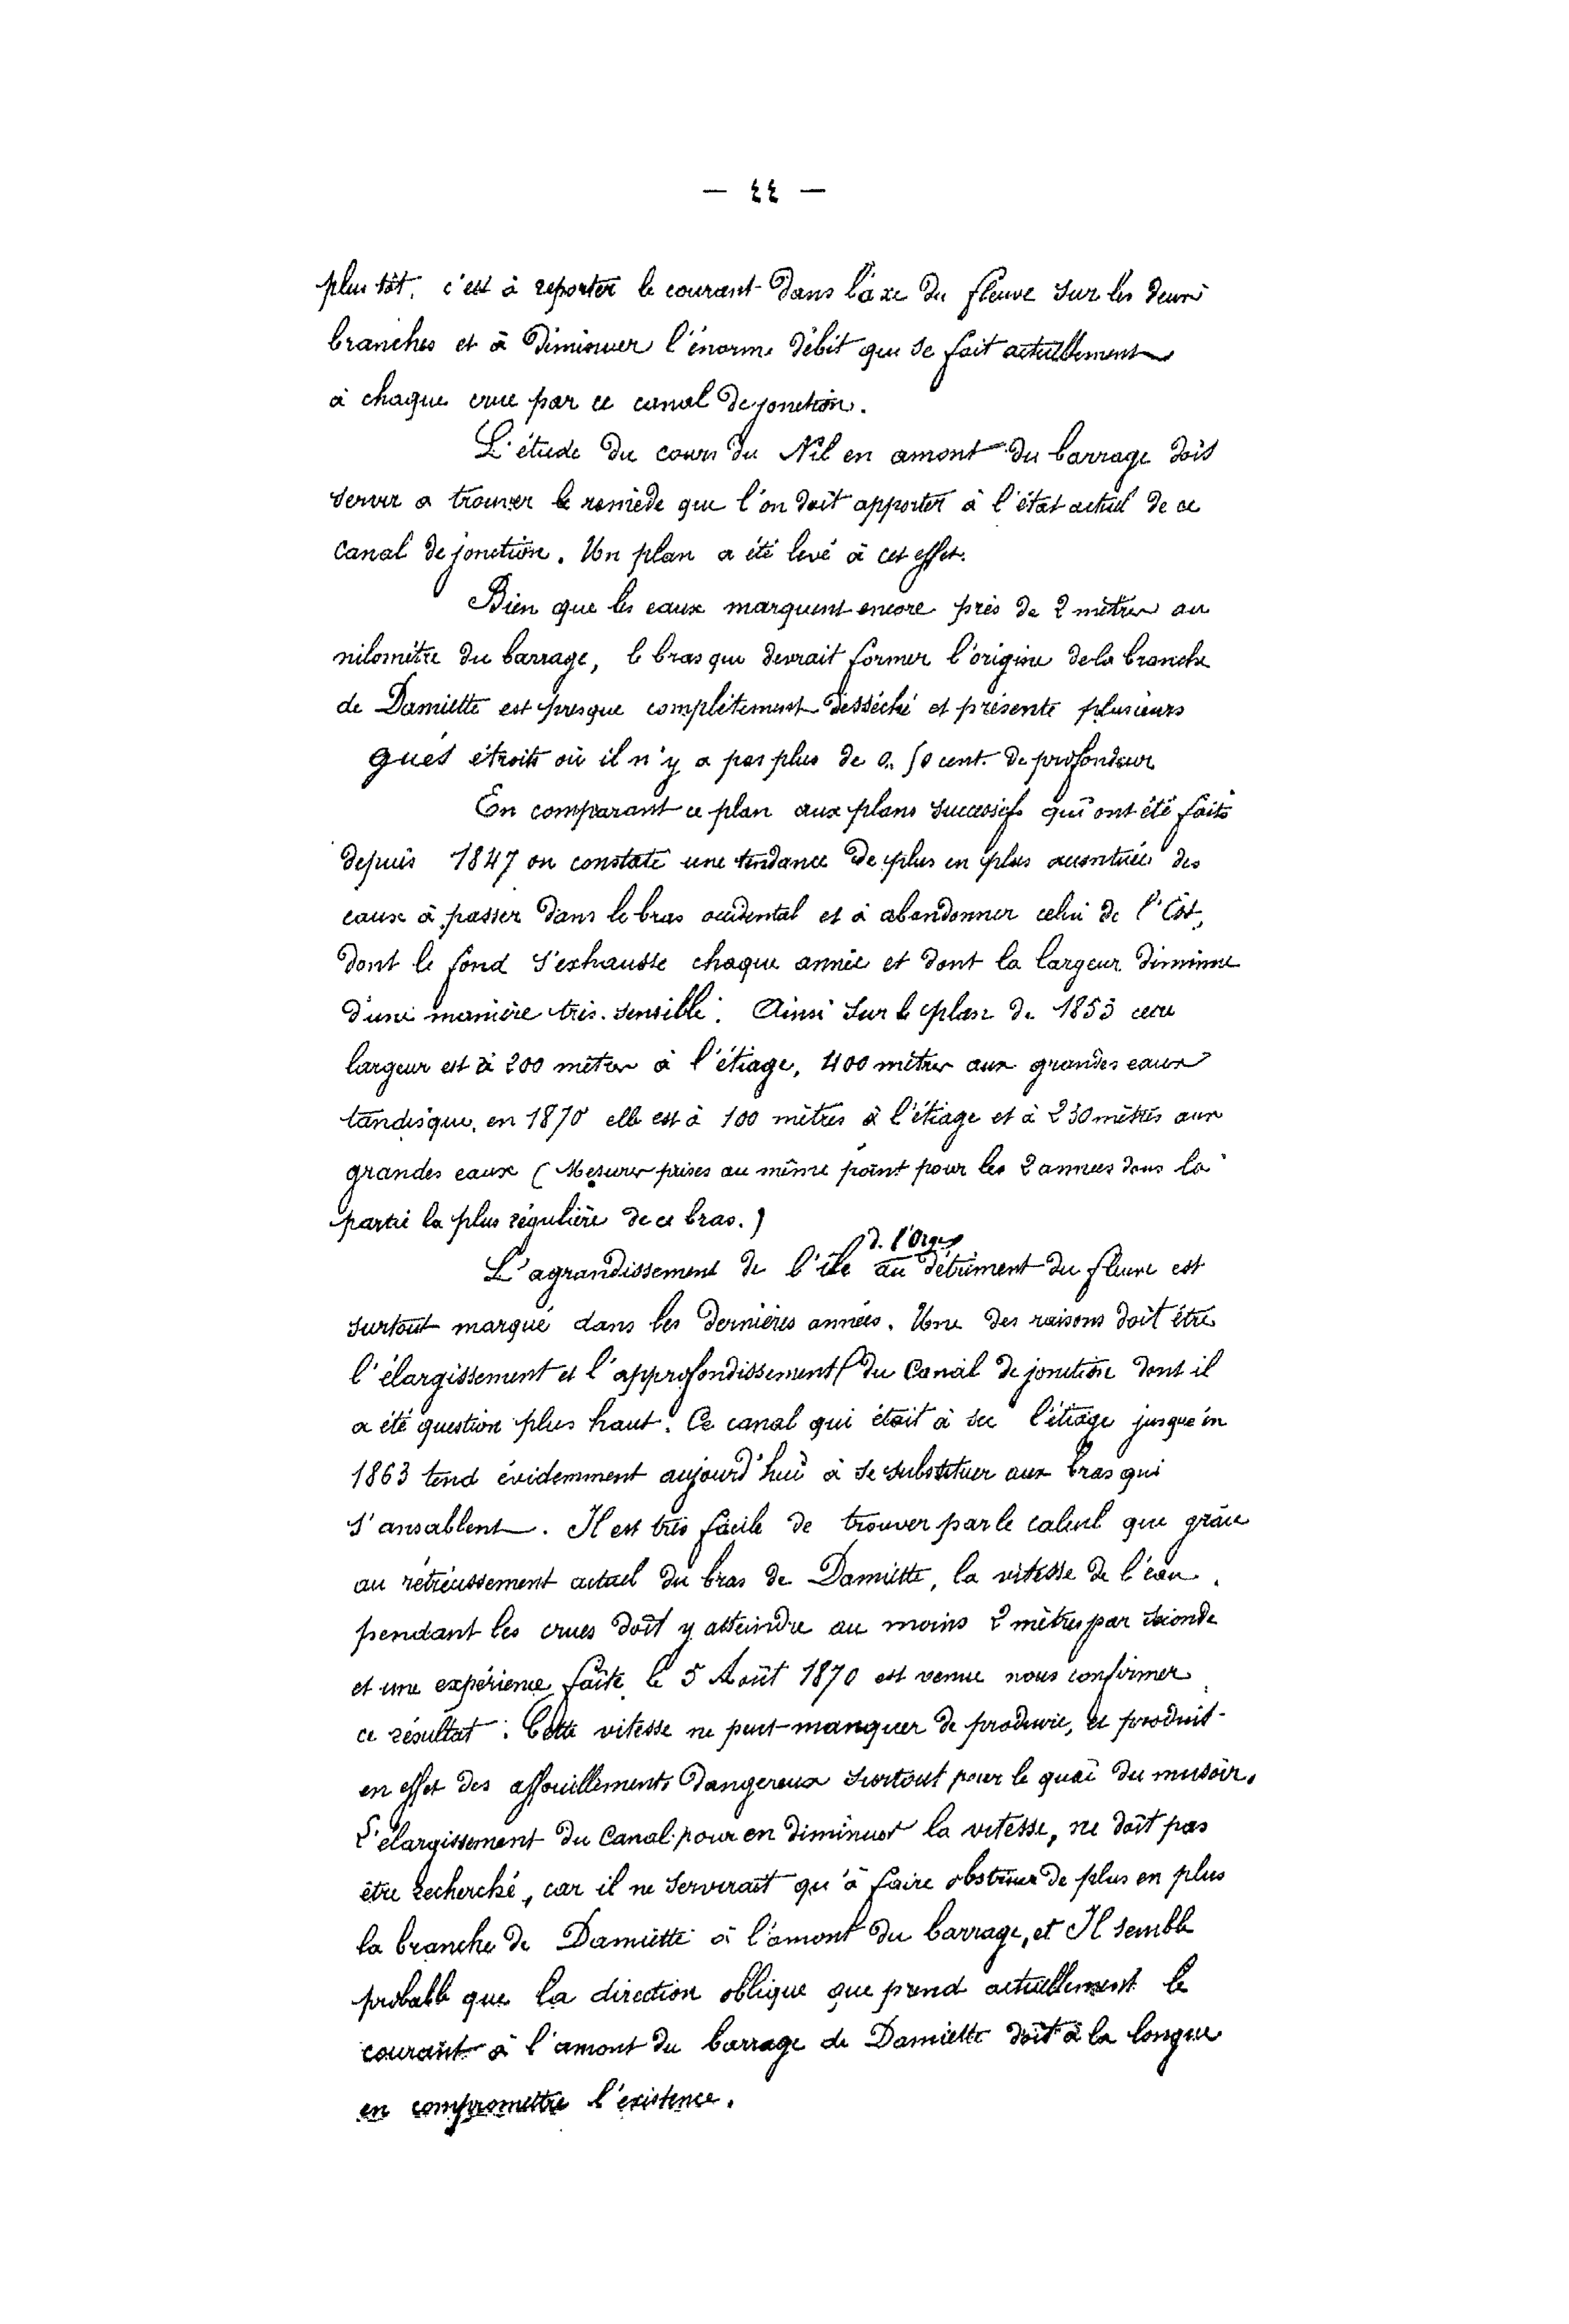 — ٤٤ —
plus tôt, c'est à reporter le courant dans l'axe du fleuve sur les deux
branches et à diminuer l'énorme débit qui se fait actuellement
à chaque crue par ce canal de jonction.
L'étude du cours du Nil en amont du barrage doit
servir a trouver le remède que l'on doit apporter à l'état actuel de ce
canal de jonction. Un plan a été levé à cet effet.
Bien que les eaux marquent encore près de 2 mètres au
nilomètre du barrage, le bras qui devrait former l'origine de la branche
de Damiette est presque complètement desséché et présente plusieurs
gués étroits où il n'y a pas plus de 0. 50 cent. de profondeur
En comparant ce plan aux plans successifs qui ont été faits
depuis 1847 on constate une tendance de plus en plus accentuée des
eaux à passer dans le bras occidental et à abandonner celui de l'Est,
dont le fond s'exhausse chaque année et dont la largeur diminue
d'une manière très-sensible. Ainsi sur le plan de 1853 cette
largeur est à 200 mètres à l'étiage, 400 mètres aux grandes eaux
tandisque, en 1870 elle est à 100 mètres à l'étiage et à 230 mètres aux
grandes eaux (Mesures prises au même point pour les 2 années dans la
partie la plus régulière de ce bras.)
L'agrandissement de l'île d. l'Orge au détriment du fleuve est
surtout marqué dans les dernières années. Une des raisons doit être
l'élargissement et l'approfondissement du Canal de jonction dont il
a été question plus haut. Ce canal qui était à sec l'étiage jusqu'én
1863 tend évidemment aujourd'hui à se substituer aux bras qui
s'ansablent. Il est très facile de trouver par le calcul que grâce
au rétrécissement actuel du bras de Damiette, la vitesse de l'eau
pendant les crues doit y atteindre au moins 2 mètres par seconde
et une expérience faite le 5 Août 1870 est venue nous confirmer
ce résultat. Cette vitesse ne peut manquer de produire, et produit
en effet des affouillements dangereux surtout pour le quai du musoir.
L'élargissement du Canal pour en diminuer la vitesse, ne doit pas
être recherché, car il ne servirait qu'à faire obstruer de plus en plus
la branche de Damiette à l'amont du barrage, et Il semble
probable que la direction oblique que prend actuellement le
courant à l'amont du barrage de Damiette doit à la longue
en compromettre l'existence.